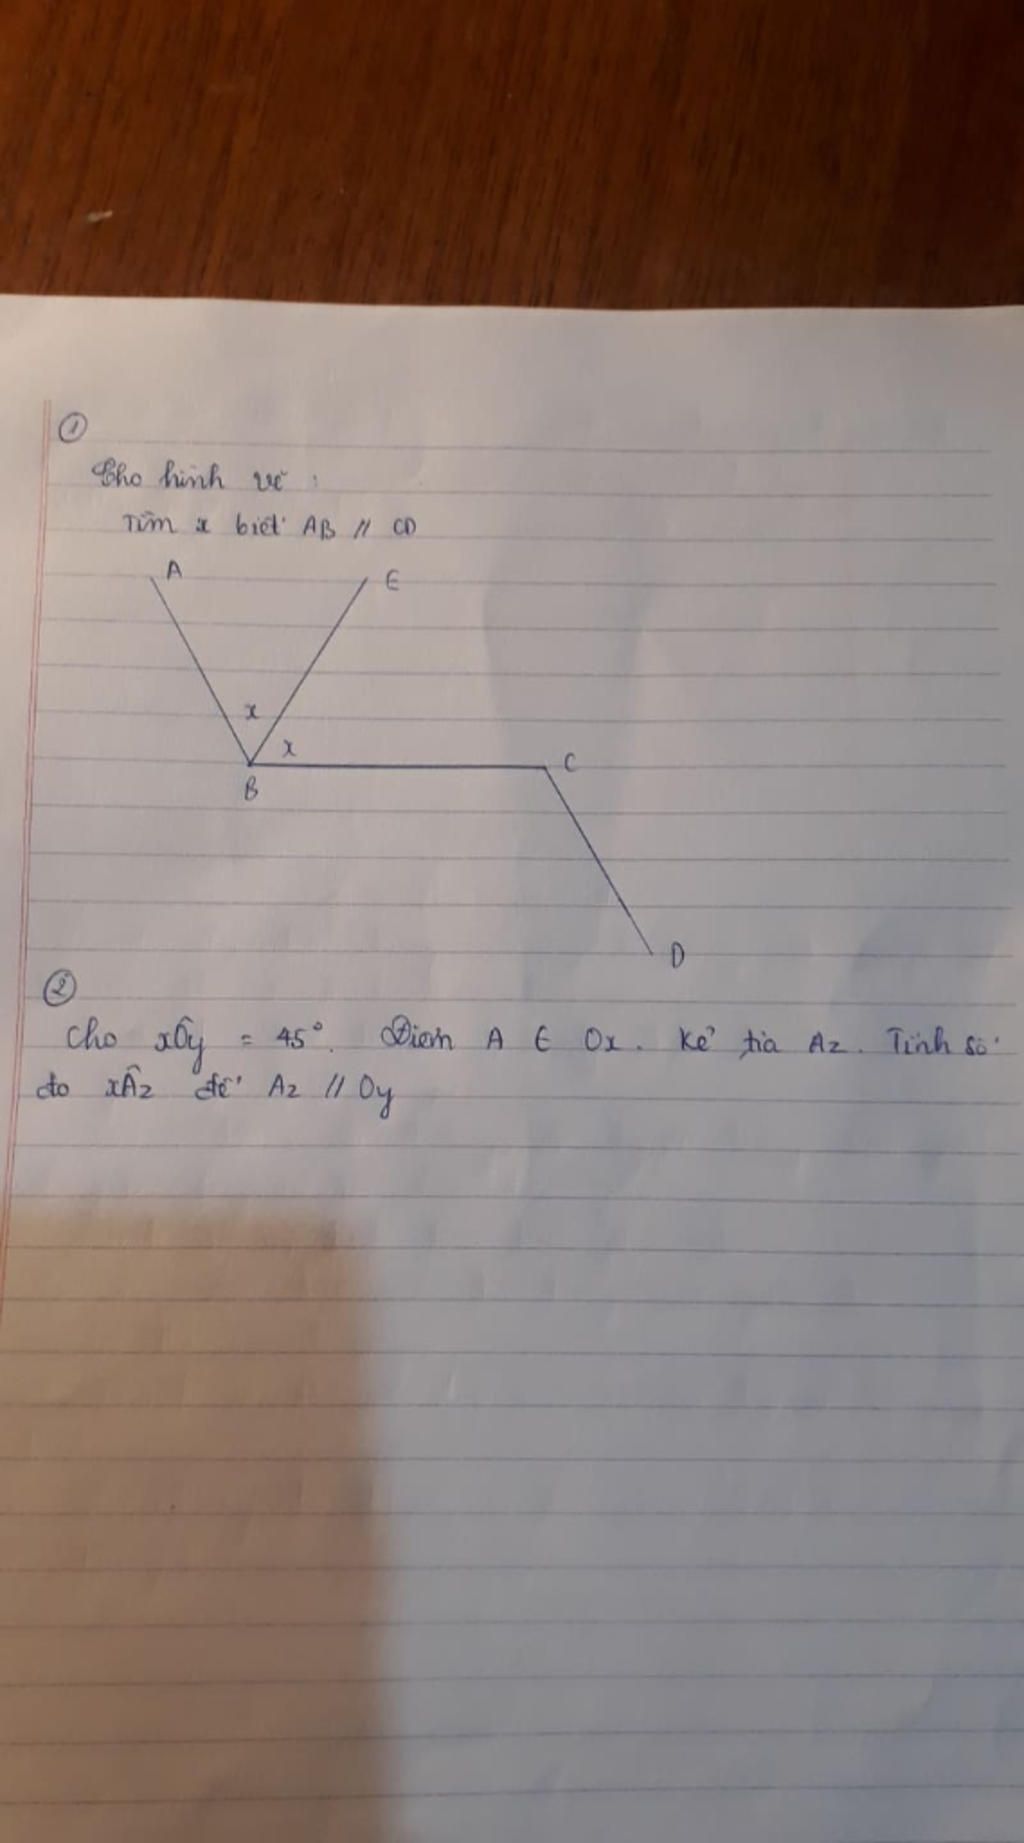 ①
Cho hình vẽ :
Tìm x biết AB // CD
A
E
x
x
C
B
D
②
Cho xÔy = 45°. Điểm A ∈ Ox. Kẻ tia Az. Tính số
đo xÂz để Az // Oy